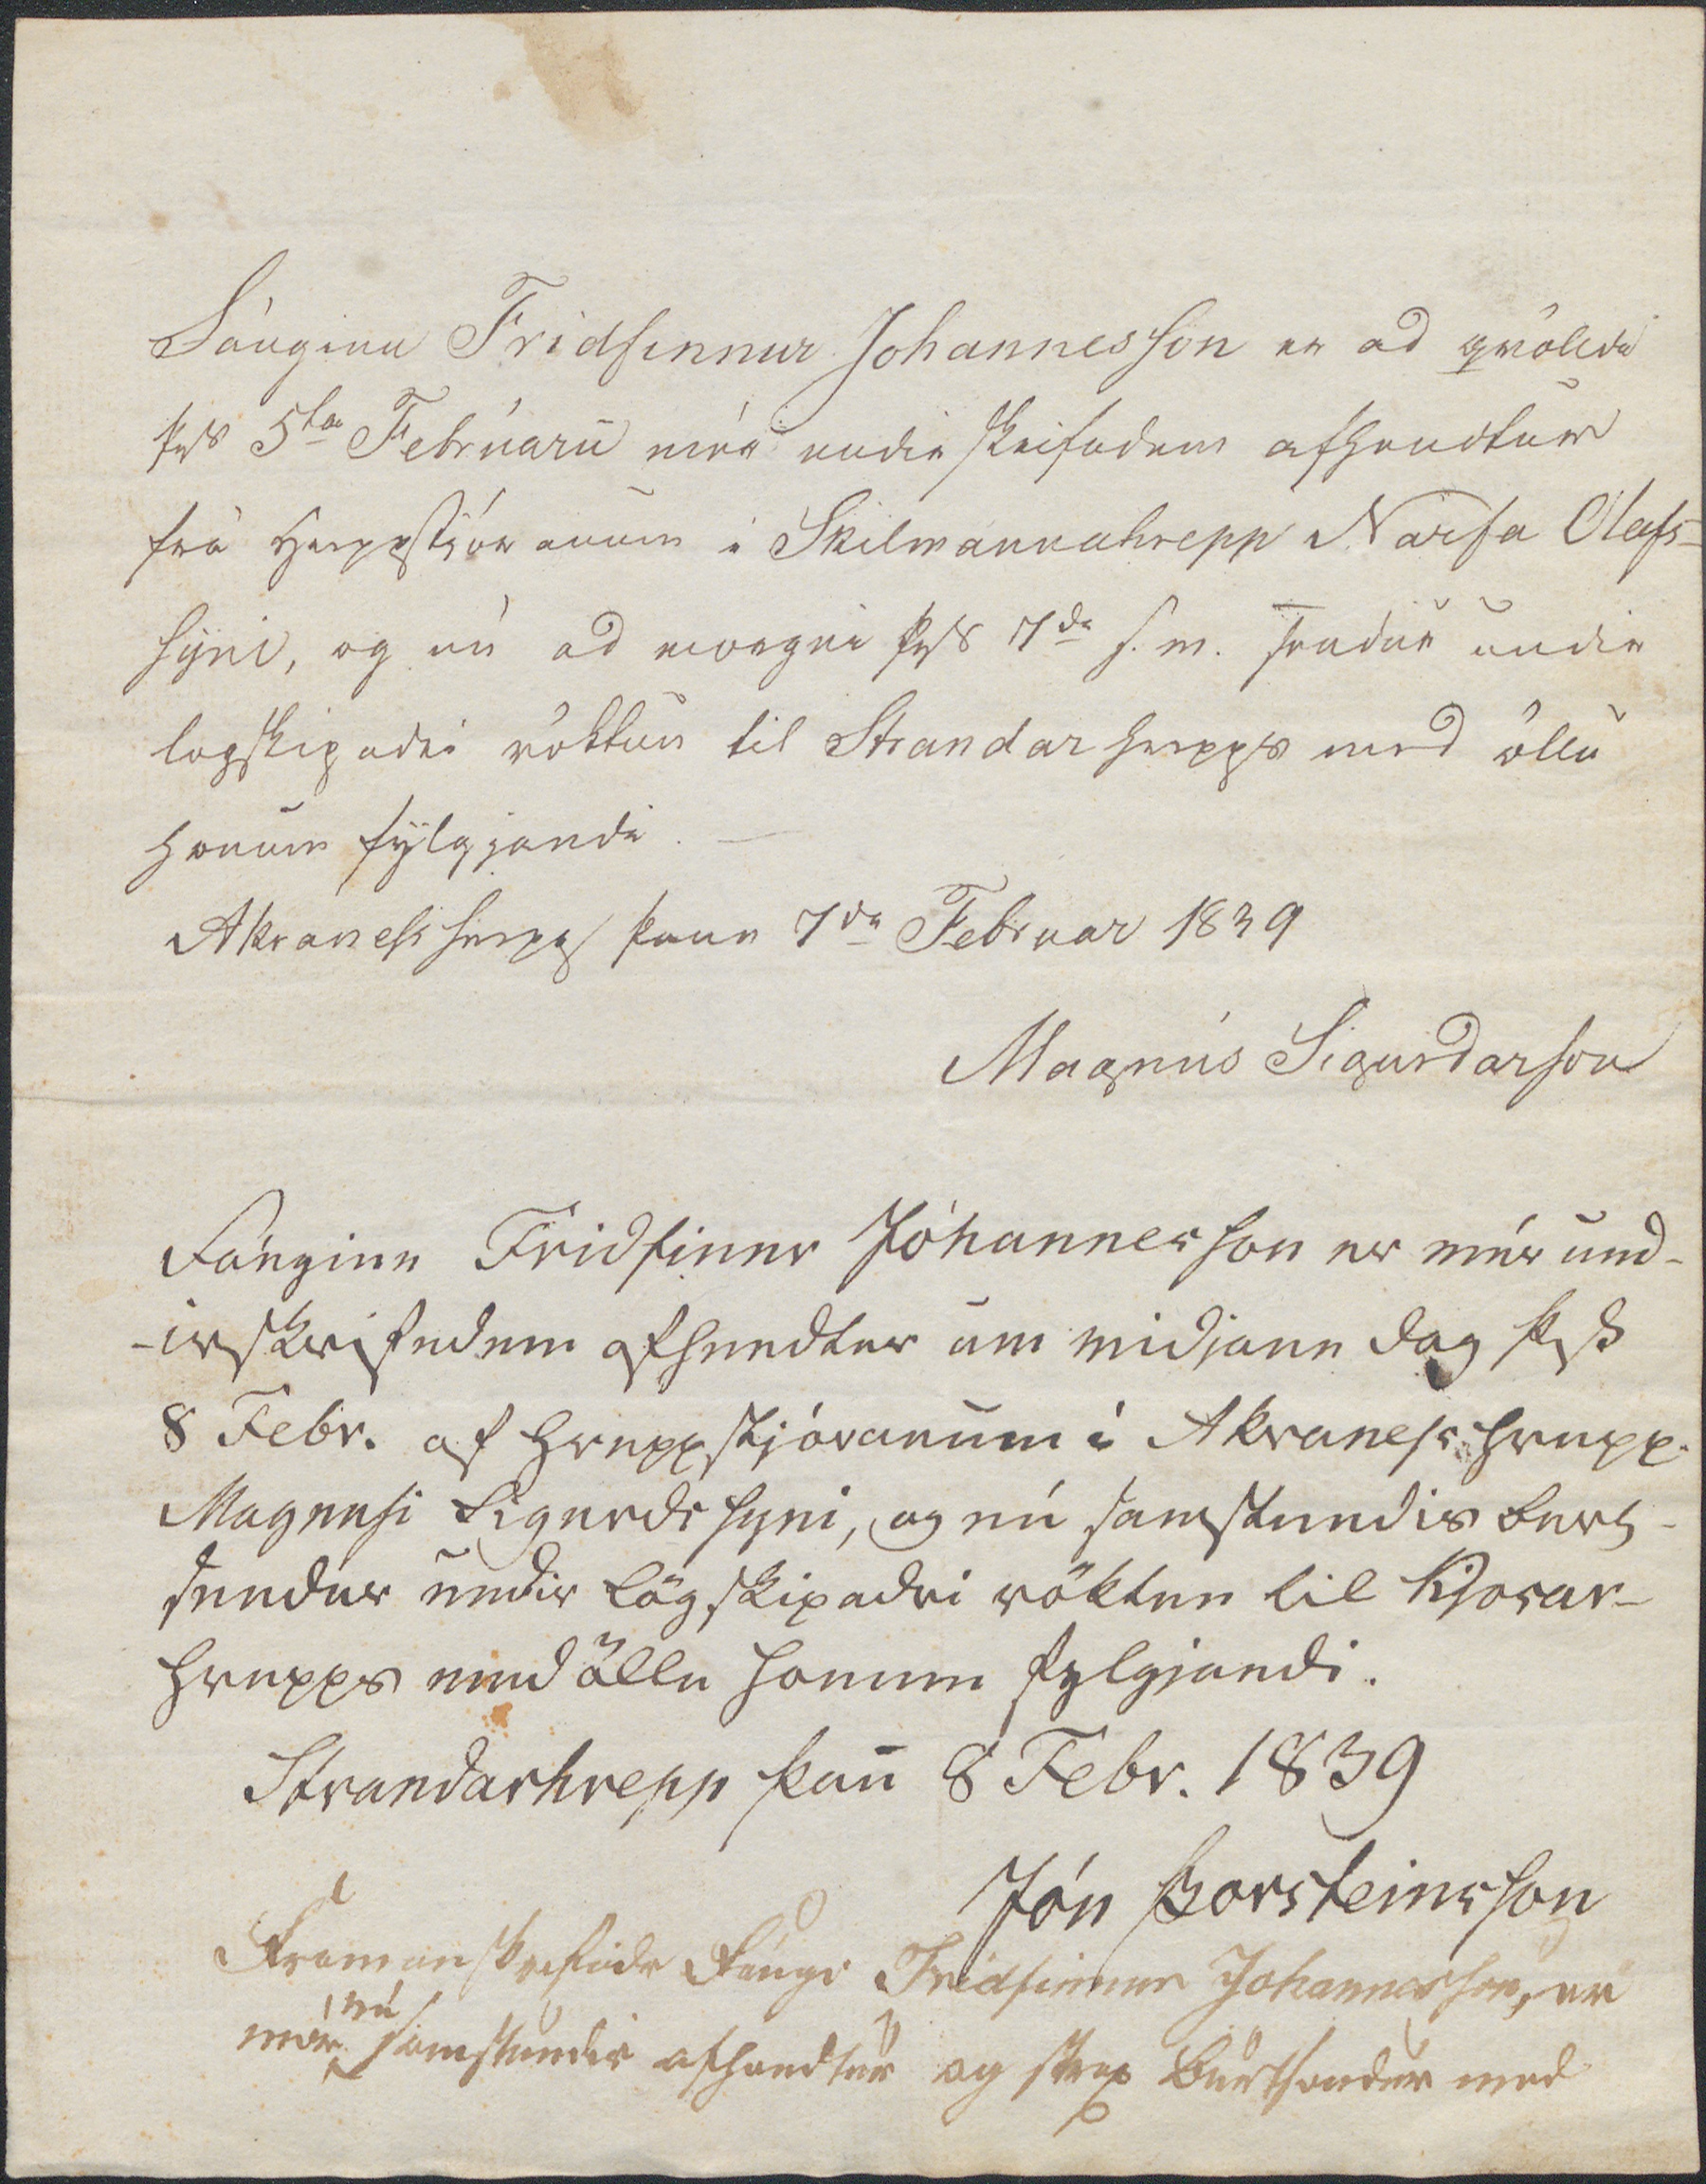 Fánginn Fridfinnur Johannesson er ad qvöldi
þess 5ta Februarii mér undirskrifudum afhendtur
frá Hreppstjóranum i Skilmannahrepp Narfa Olafs-
syni, og nú ad morgni þess 7da s. m. sendur undir
logskipadri vöktun til Strandarhrepps med öllu
honum fylgjandi. —
Akranesshrepp þann 7da Februar 1839
Magnús Sigurdarson
Fánginn Fridfinnr Jóhannesson er mér und-
-irskrifudum afhendtur um midjann dag þess
8 Febr. af Hreppstjóranum í Akraness hrepp.
Magnusi Sigurdssyni, og nú samstundis burt-
sendur undir lögskipadri vöktun til Kjosar-
hrepps med öllu honum fylgjandi.
Strandarhrepp þann 8 Febr. 1839
Jón Þorsteinsson
Framanskrifadr Fángi Fridfinnur Johannesson, er
mér nú samstundis afhendtur og strax burtsendur med